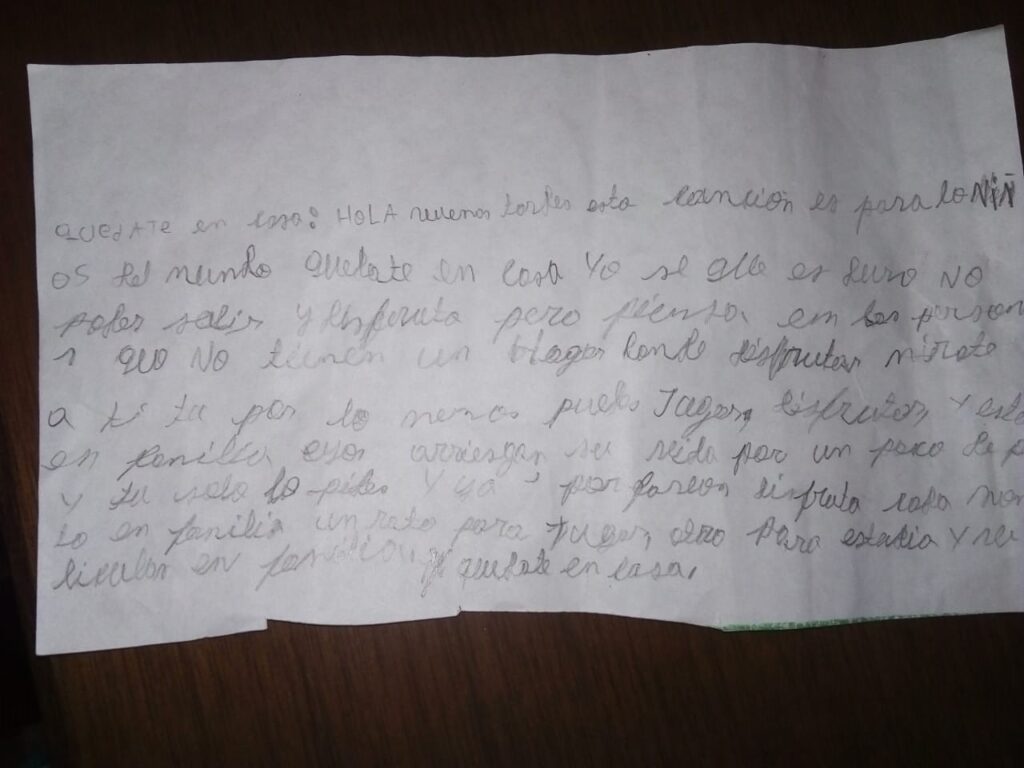 QUEDATE en casa: HOLA vuenas tardes esta cancion es para lo NIÑ
OS del mundo quedate en casa Yo se que es duro NO
poder salir y disfruta pero piensa en las person
que NO tienen un Hogar donde disfrutar mirate
a ti tu por lo menos puedes Jugar, disfrutar, y esta
en familia, esos arriesgan su vida por un poco de p
y tu solo lo pides y ya por favor disfruta cada mom
to en familia un rato para Jugar, otro para estudia y
en familia y quedate en casa,